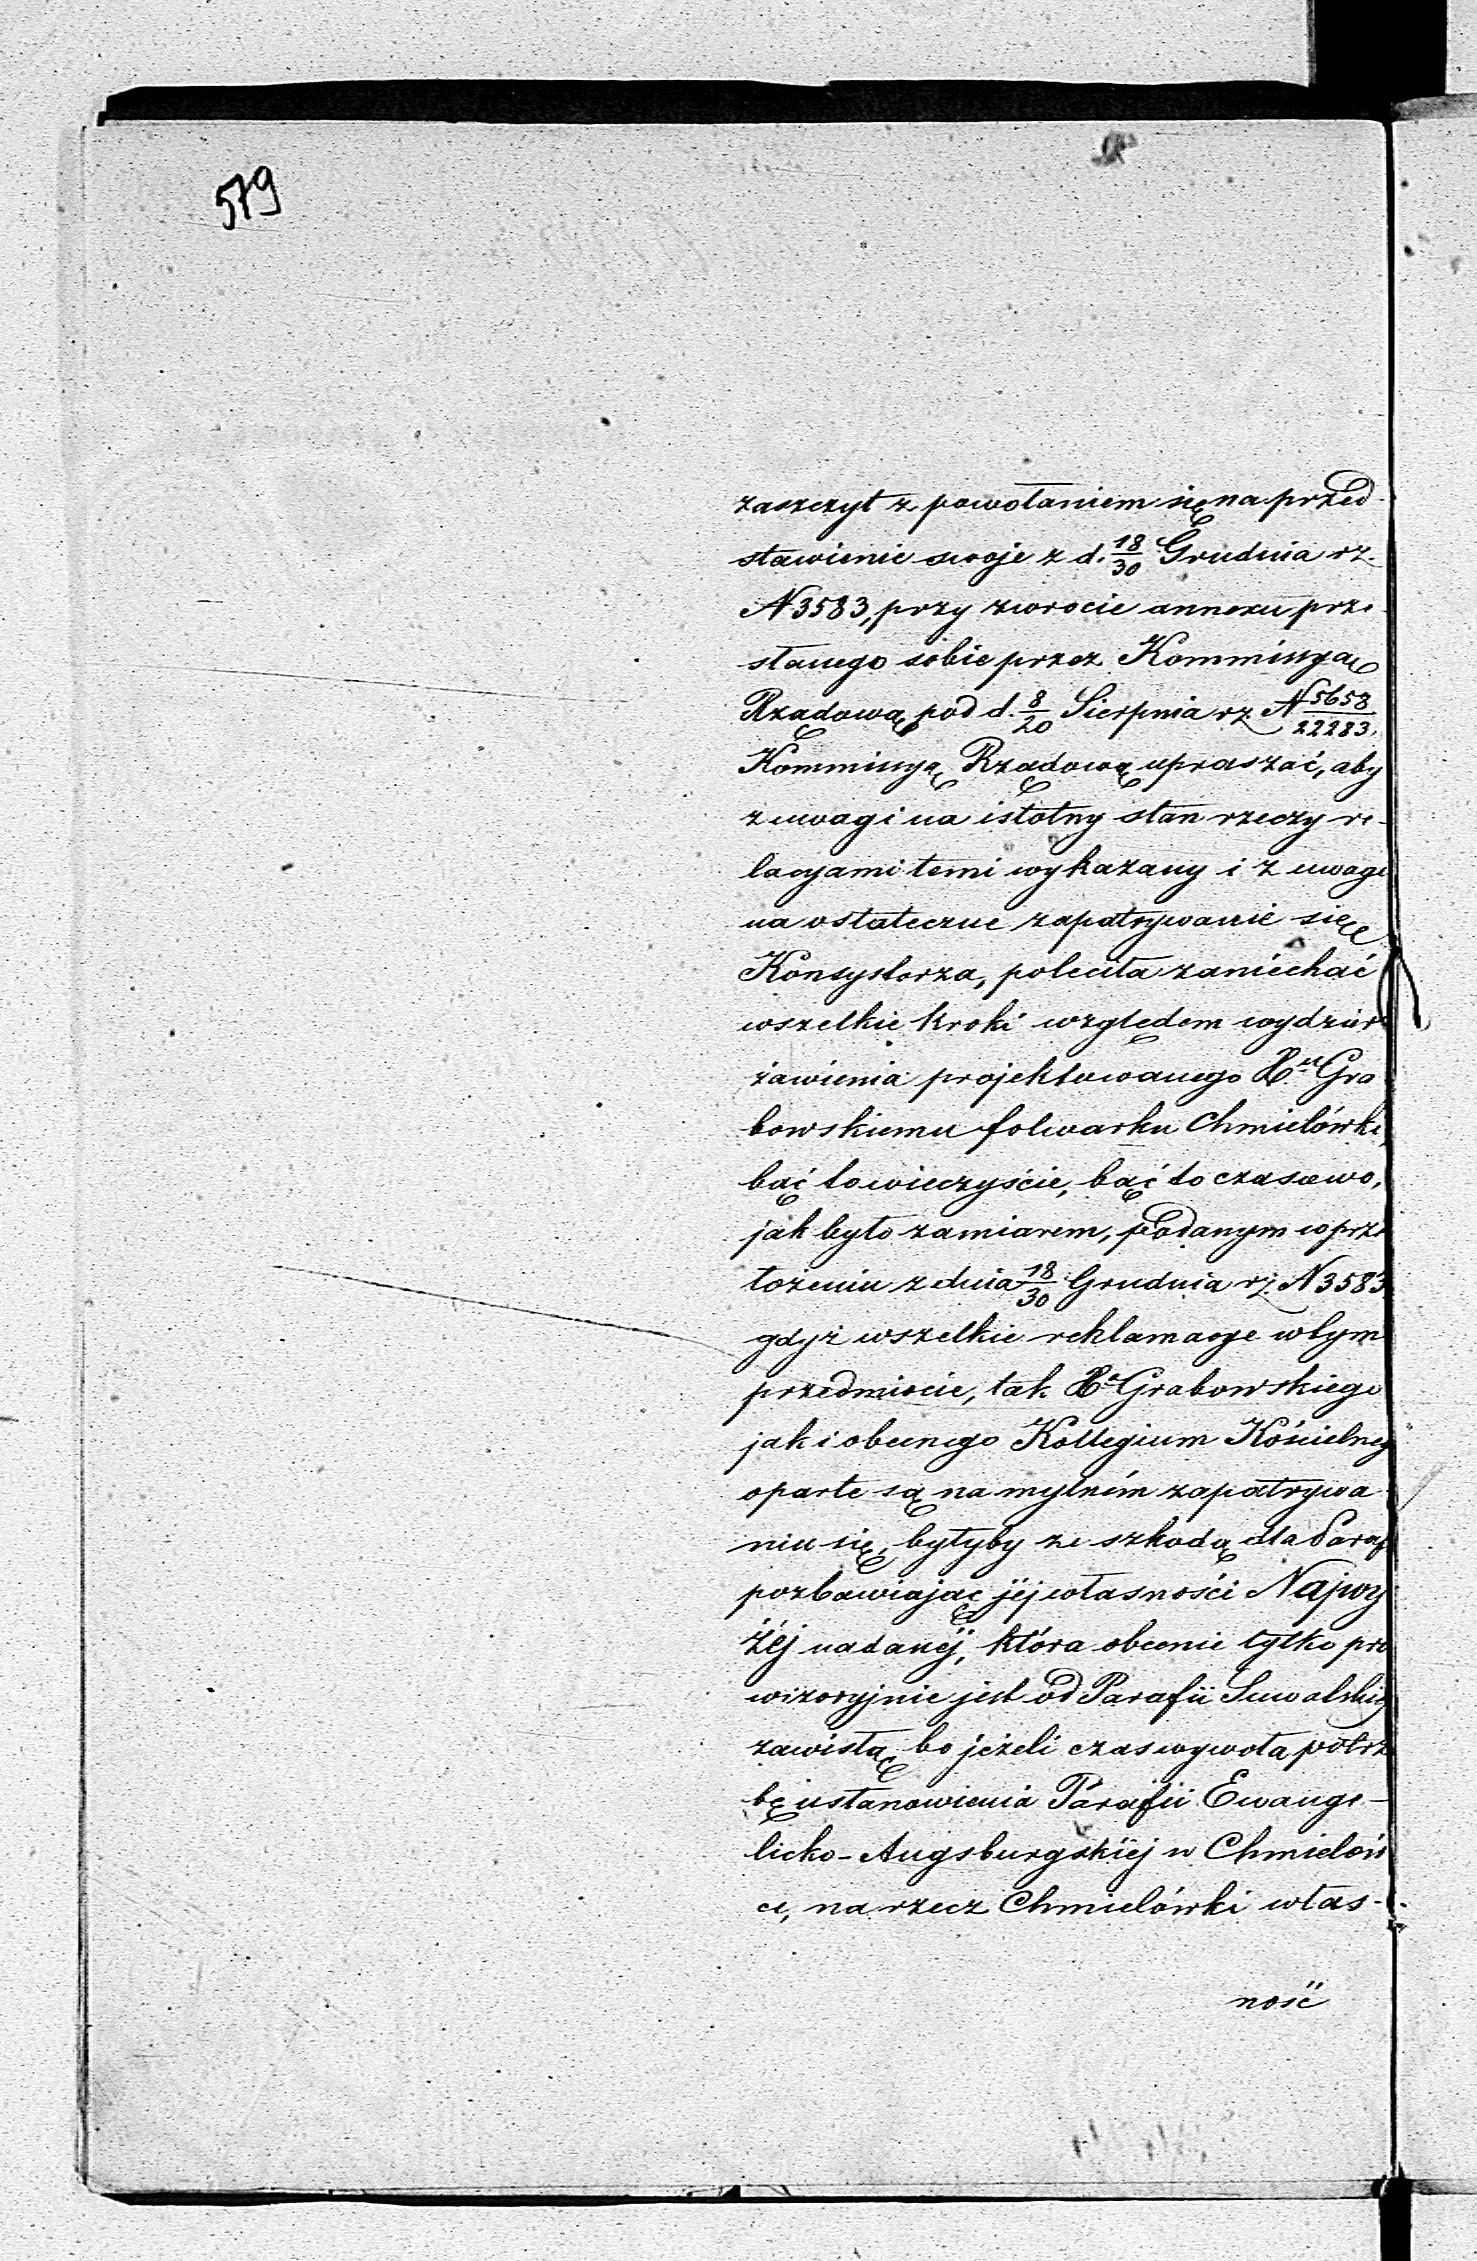 579
zaszczyt z powołaniem się na przed
stawienie swoje z d. 18/30 Grudnia rz.
N 3583, przy zwrocie annexu prze
słanego sobie przez Kommissyą
Rządową pod d. 8/20 Sierpnia rz. N 5658/22283.
Kommissyą Rządową upraszać, aby
z uwagi na istotny stan rzeczy re-
lacyami temi wykazany i z uwagi
na ostateczne zapatrywanie się
Konsystorza, poleciła zaniechać
wszelkie kroki względem wydzier
żawienia projektowanego Xu Gra
bowskiemu folwarku Chmielówki,
bąć to wieczyście, bąć to czasowo,
jak było zamiarem, podanym w prze
łożeniu z dnia 18/30 Grudnia rz. N 3583
gdyż wszelkie reklamacye w tym
przedmiocie, tak Xa Grabowskiego
jak i obecnego Kollegium Kościelneg
oparte są na mylném zapatrywa
niu się, byłyby ze szkodą dla Paraf
pozbawiając jéj własności Najwy
żéj nadanéj, która obecnie tylko pro
wizoryjnie jest od Parafii Suwalskiej
zawisłą, bo jeżeli czas wywoła potrze
bę ustanowienia Parafii Ewange-
licko-Augsburgskiéj w Chmielów
ce, na rzecz Chmielówki włas-
ność